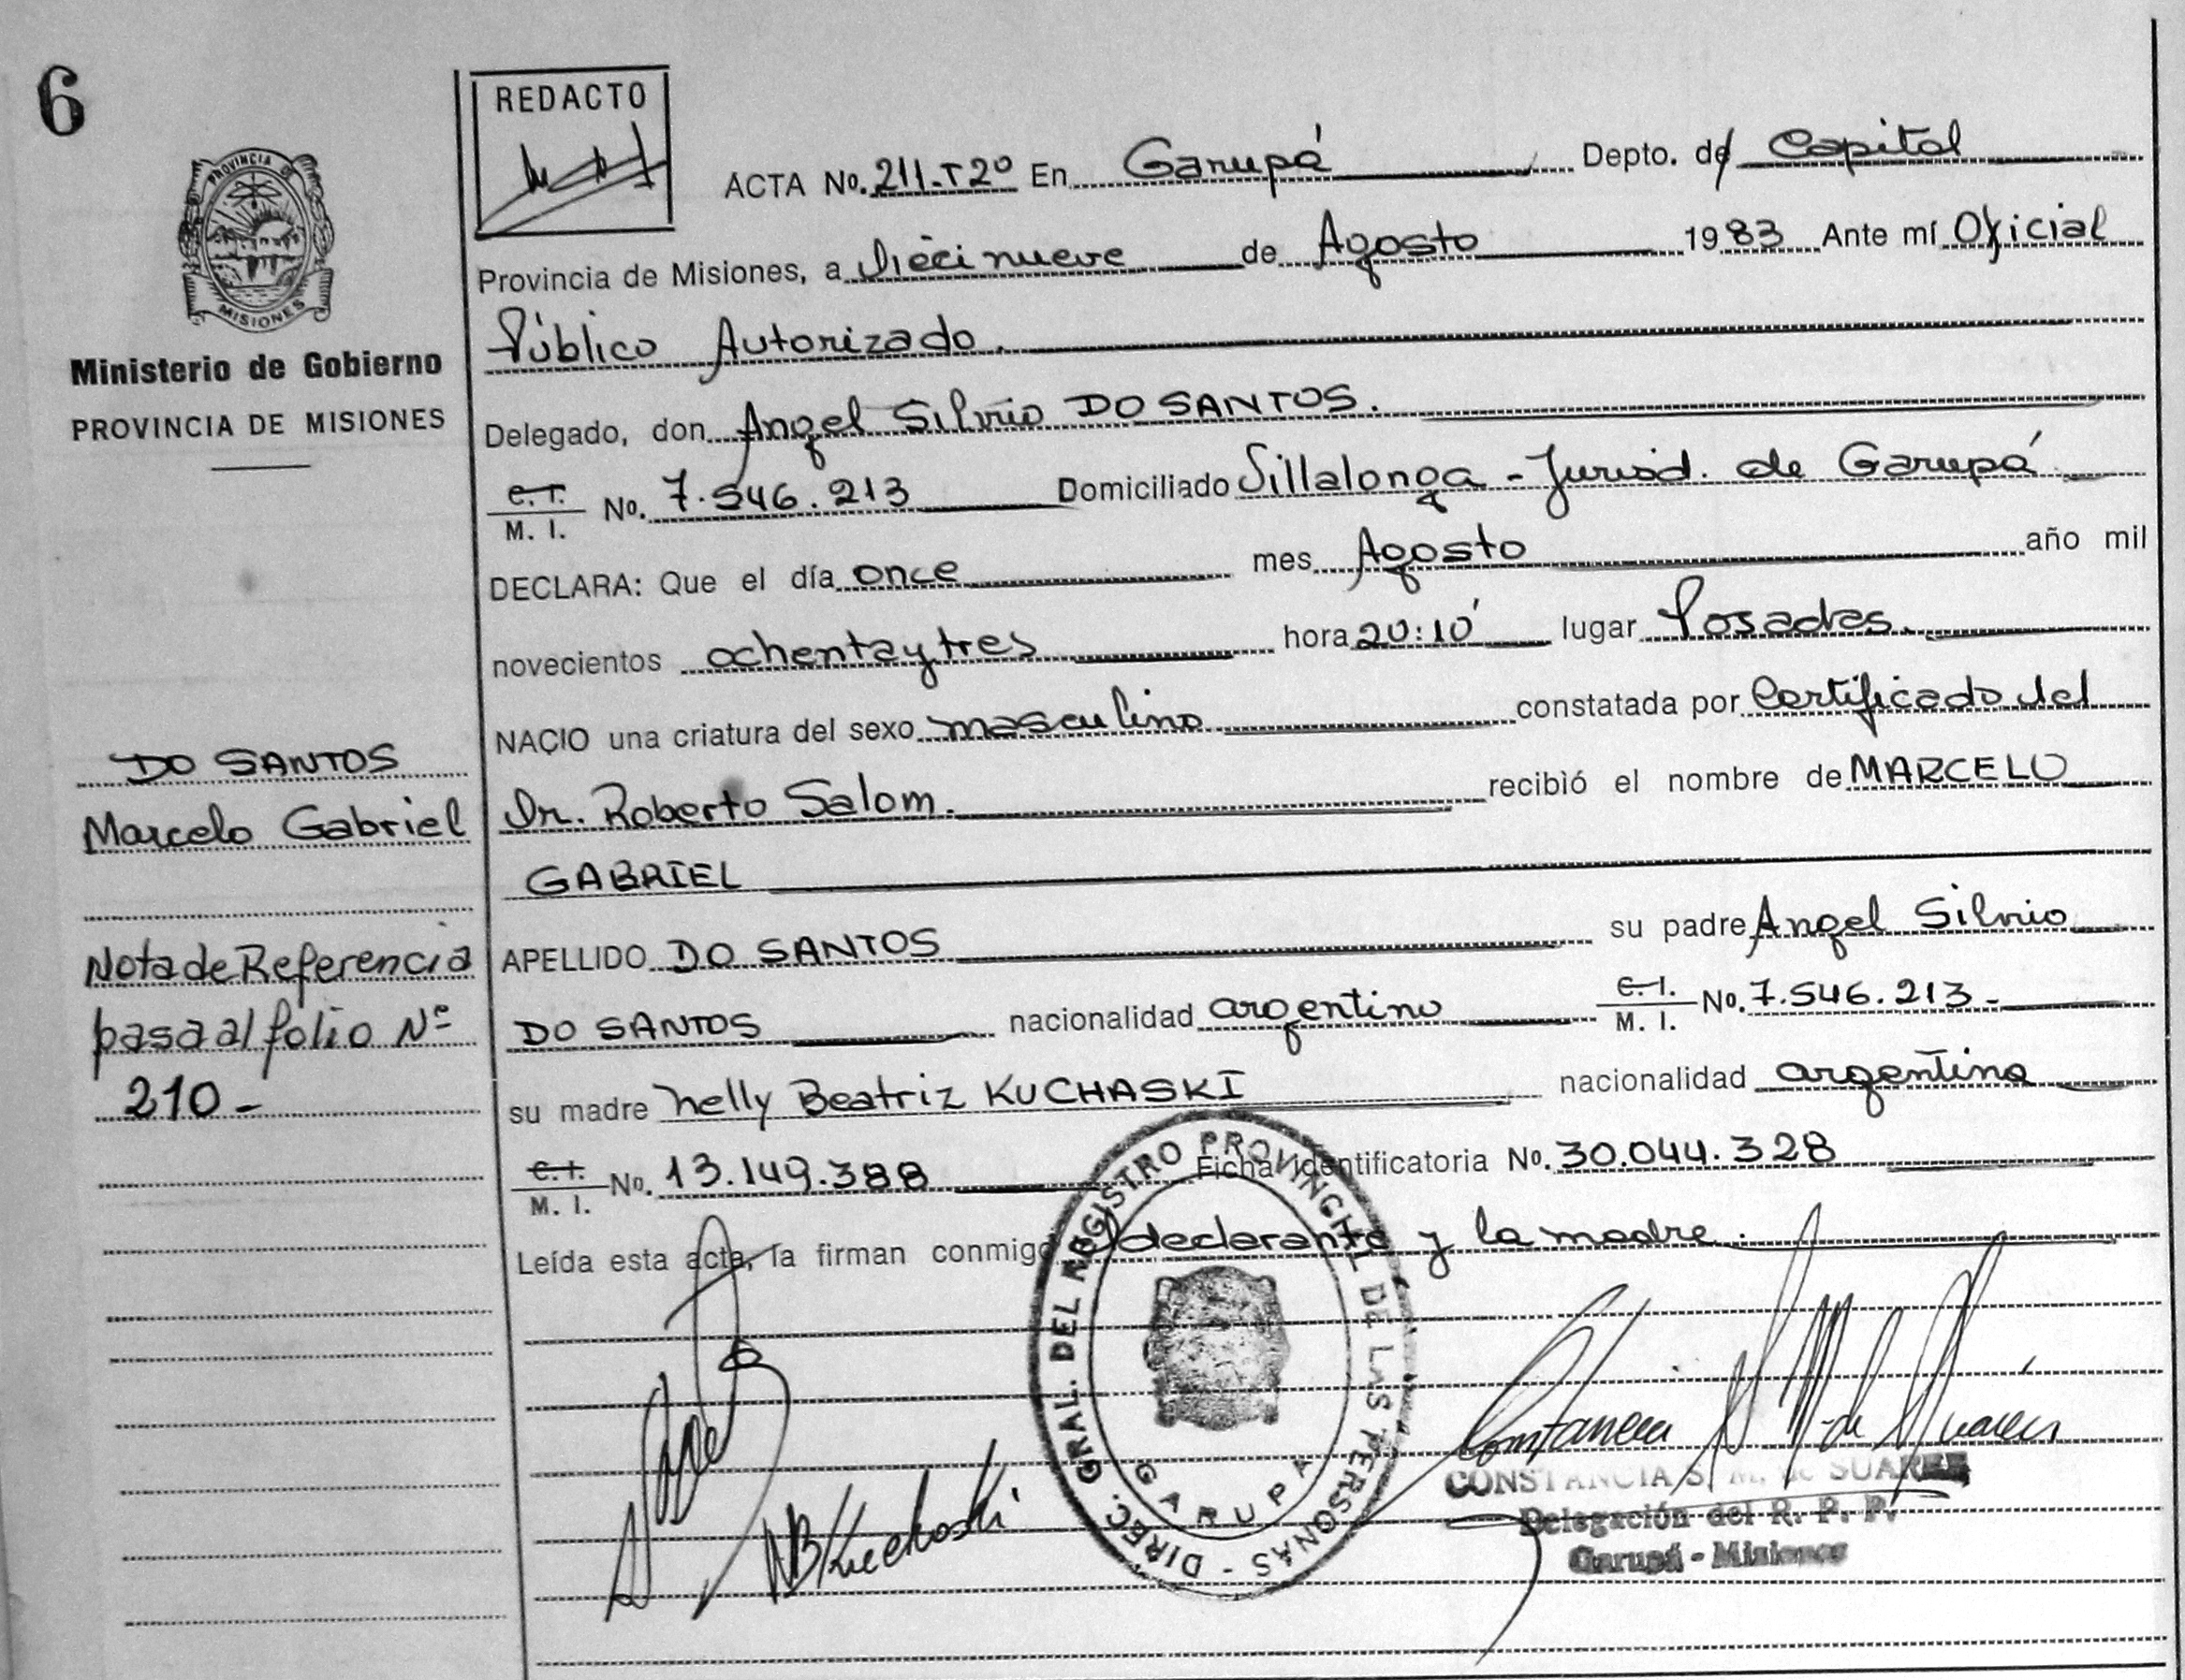 6
REDACTO
PROVINCIA DE
MISIONES
Ministerio de Gobierno
PROVINCIA DE MISIONES
ACTA No. 211-T2º En Garupá Depto. de Capital
Provincia de Misiones, a diecinueve de Agosto 1983 Ante mí Oficial
Público Autorizado.
Delegado, don Angel Silvio DO SANTOS.
C.I.
M. I. No. 7.546.213 Domiciliado Villalonga - Jurisd. de Garupá
DECLARA: Que el día once mes Agosto año mil
novecientos ochentaytres hora 20:10' lugar Posadas.
NACIO una criatura del sexo masculino constatada por Certificado del
Dr. Roberto Salom. recibió el nombre de MARCELO
GABRIEL
APELLIDO DO SANTOS su padre Angel Silvio
DO SANTOS nacionalidad argentino C.I. M. I. No. 7.546.213-
su madre Nelly Beatriz KUCHASKI nacionalidad argentina
C.I. M. I. No. 13.149.388 Ficha identificatoria No. 30.044.328
Leída esta acta, la firman conmigo declarante y la madre.
DO SANTOS
Marcelo Gabriel
Nota de Referencia
pasa al folio Nº
210-
DIREC. GRAL. DEL REGISTRO PROVINCIAL DE LAS PERSONAS -
GARUPA
NBKuchaski
Constancia S. M. de Suárez
CONSTANCIA S. M. de SUAREZ
Delegación del R. P. P.
Garupá - Misiones